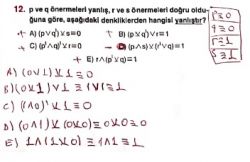 12. p ve q önermeleri yanlış, r ve s önermeleri doğru oldu-
ğuna göre, aşağıdaki denkliklerden hangisi yanlıştır?
A) (p∨q')⊻s≡0
B) (p⊻q')∨r≡1
C) (p'∧q)'∨r≡1
D) (p∧s)⊻(r'∨q)≡1
E) r∧(p'⊻q)≡1
p≡0
q≡0
r≡1
s≡1
A) (0∨1)⊻1≡0
B) (0⊻1)∨1≡1∨1≡1
D) (0∧1)⊻(0∨0)≡0⊻0≡0
E) 1∧(1⊻0)≡1∧1≡1